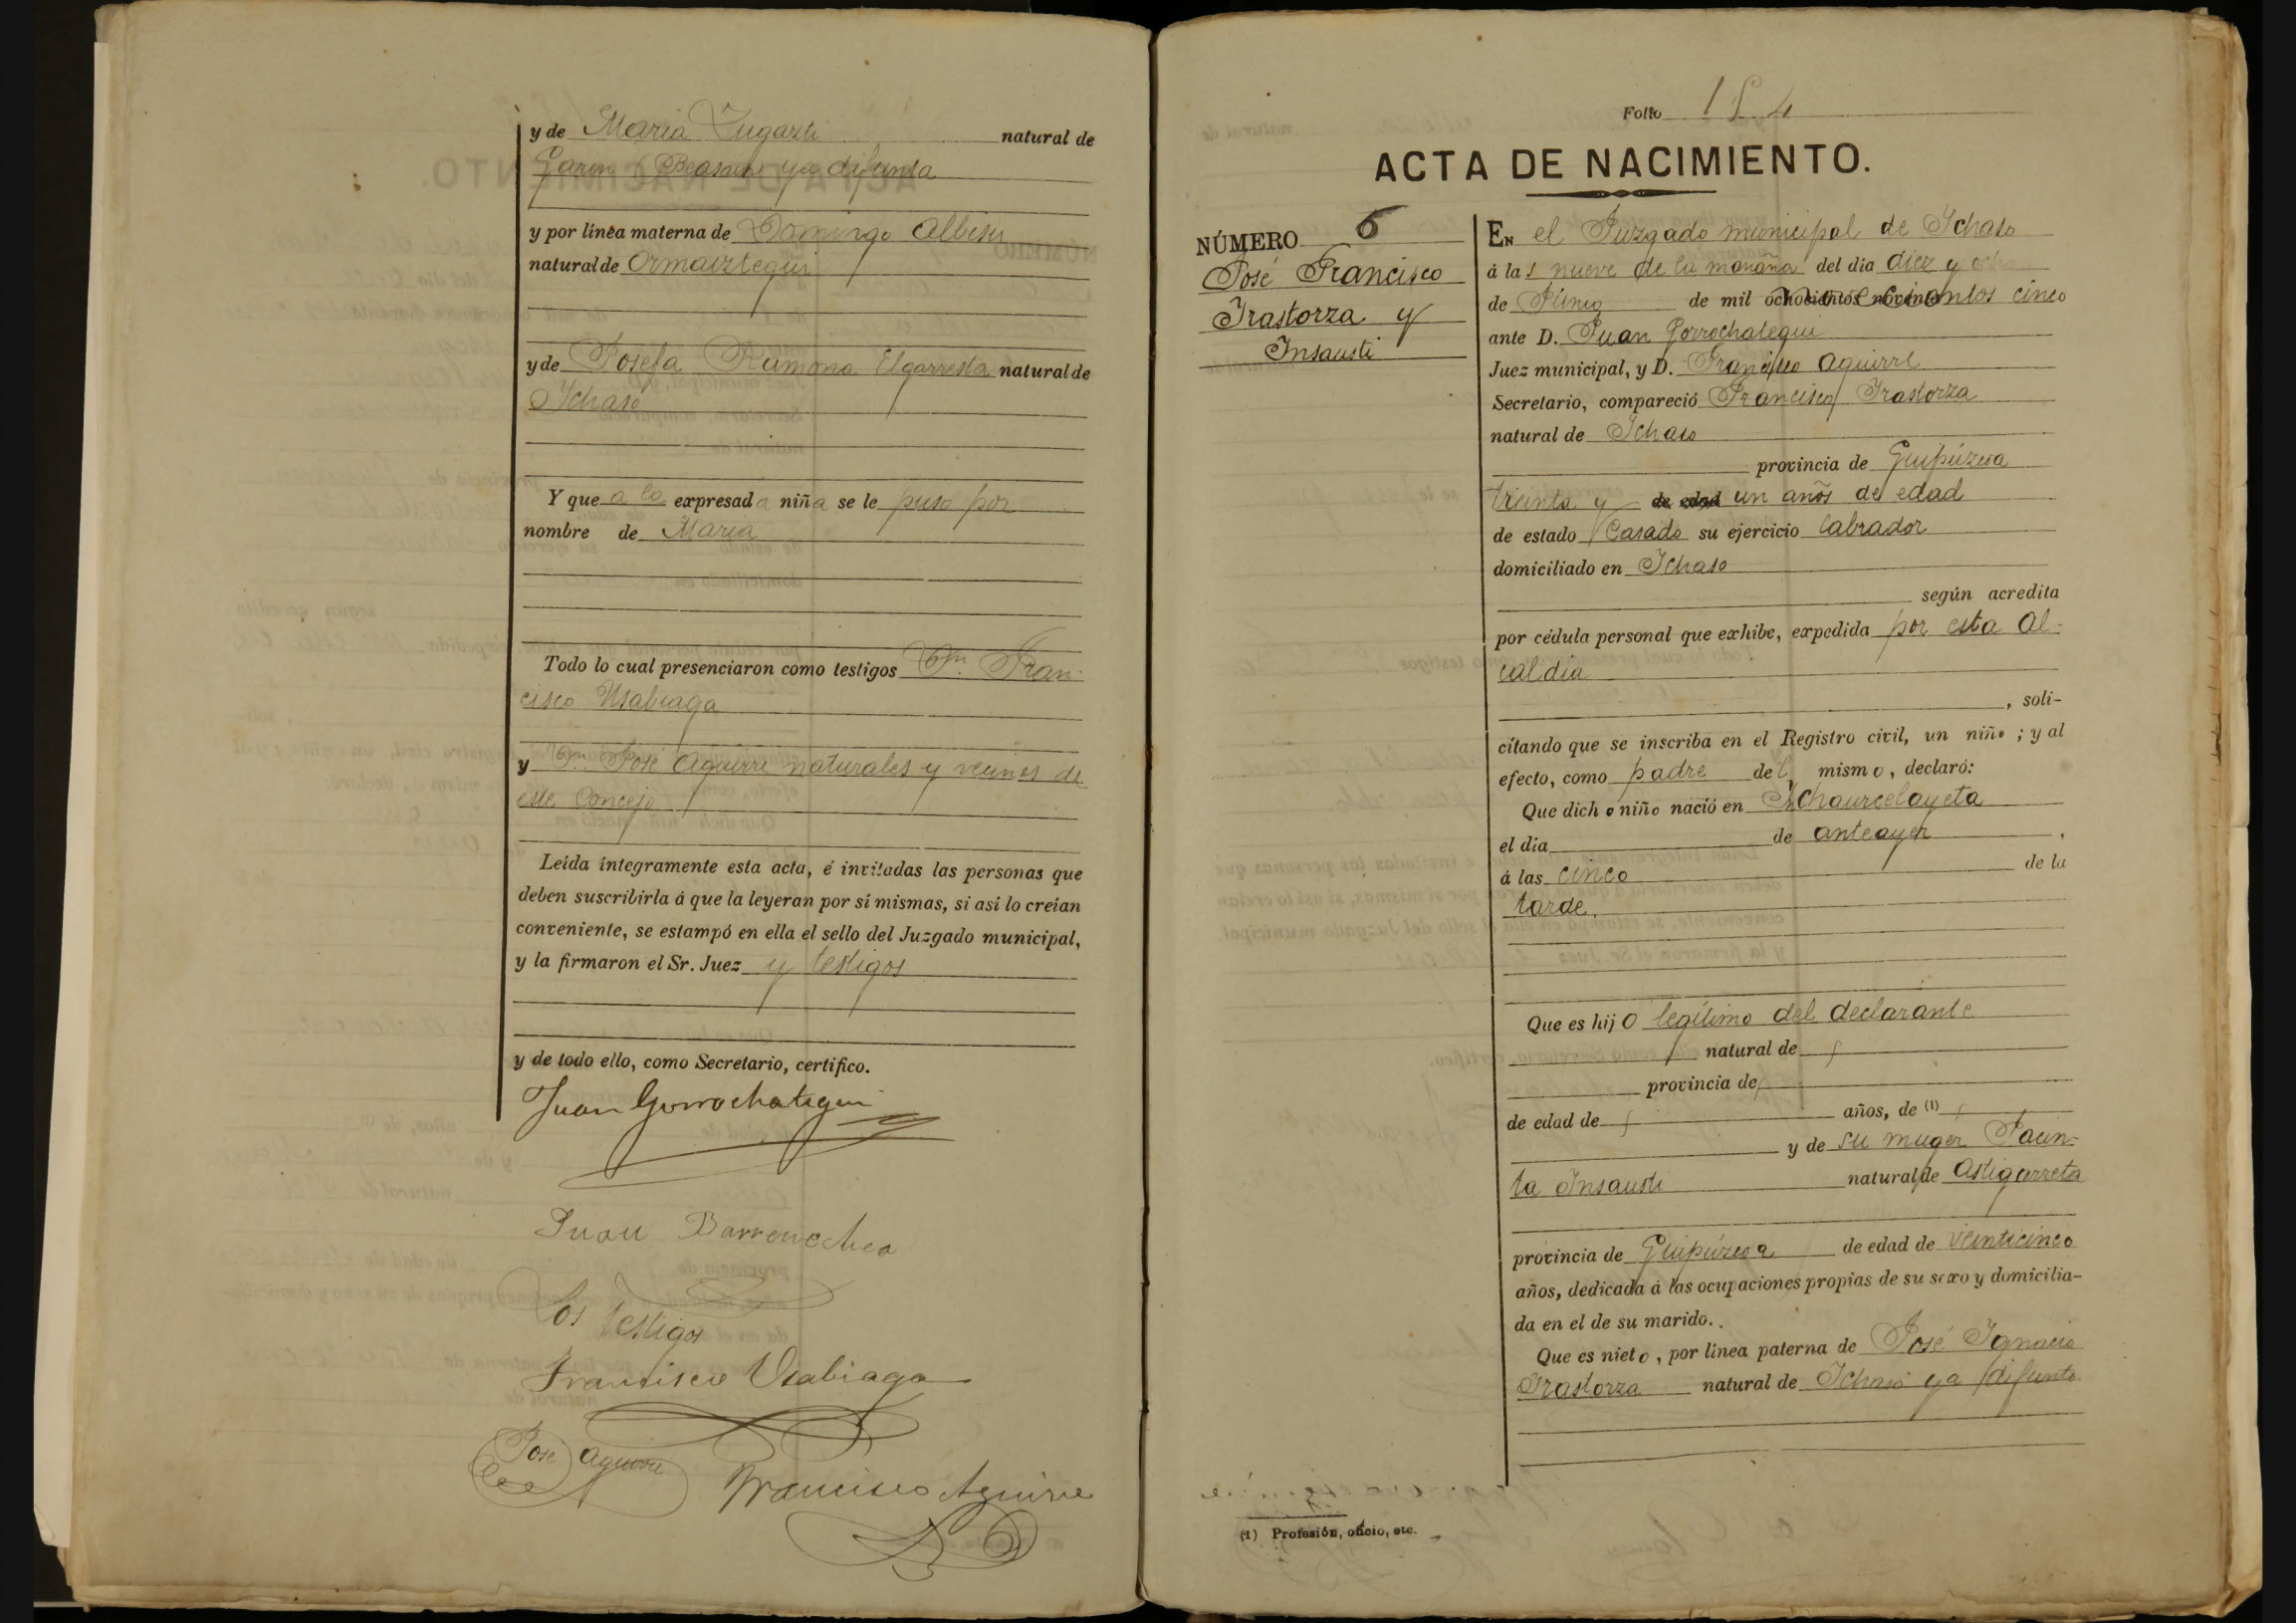 y de María Zugazti natural de
Garin (Beasain) ya difunta
y por línea materna de Domingo Albisu
natural de Ormaiztegui
y de Josefa Ramona Elgarresta natural de
Ichaso
Y que a la expresada niña se le puso por
nombre de María
Todo lo cual presenciaron como testigos Dn. Fran-
cisco Usabiaga
y Dn. José Aguirre naturales y vecinos de
este Concejo
Leída íntegramente esta acta, é invitadas las personas que
deben suscribirla á que la leyeran por sí mismas, si así lo creían
conveniente, se estampó en ella el sello del Juzgado municipal,
y la firmaron el Sr. Juez y testigos
y de todo ello, como Secretario, certifico.
Juan Gorrochategui
Juan Barrenechea
Los testigos
Francisco Usabiaga
José Aguirre
Francisco Aguirre
Folio 154
ACTA DE NACIMIENTO.
NÚMERO 6
José Francisco
Irastorza y
Insausti
EN el Juzgado municipal de Ichaso
á las nueve de la mañana del dia diez y ocho
de Junio de mil ochocientos noventa novecientos cinco
ante D. Juan Gorrochategui
Juez municipal, y D. Francisco Aguirre
Secretario, compareció Francisco Irastorza
natural de Ichaso
provincia de Guipúzcoa
treinta y de edad un años de edad
de estado Casado su ejercicio labrador
domiciliado en Ichaso
según acredita
por cédula personal que exhibe, expedida por esta Al-
caldia
, soli-
citando que se inscriba en el Registro civil, un niño ; y al
efecto, como padre del mismo, declaró:
Que dicho niño nació en Ichaurcelayeta
el dia de anteayer ,
á las cinco de la
tarde.
Que es hijo legítimo del declarante
natural de
provincia de
de edad de años, de (1)
y de su muger Jacin-
ta Insausti natural de Astigarreta
provincia de Guipúzcoa de edad de veinticinco
años, dedicada á las ocupaciones propias de su sexo y domicilia-
da en el de su marido.
Que es nieto, por linea paterna de José Ignacio
Irastorza natural de Ichaso ya difunto
(1) Profesión, oficio, etc.